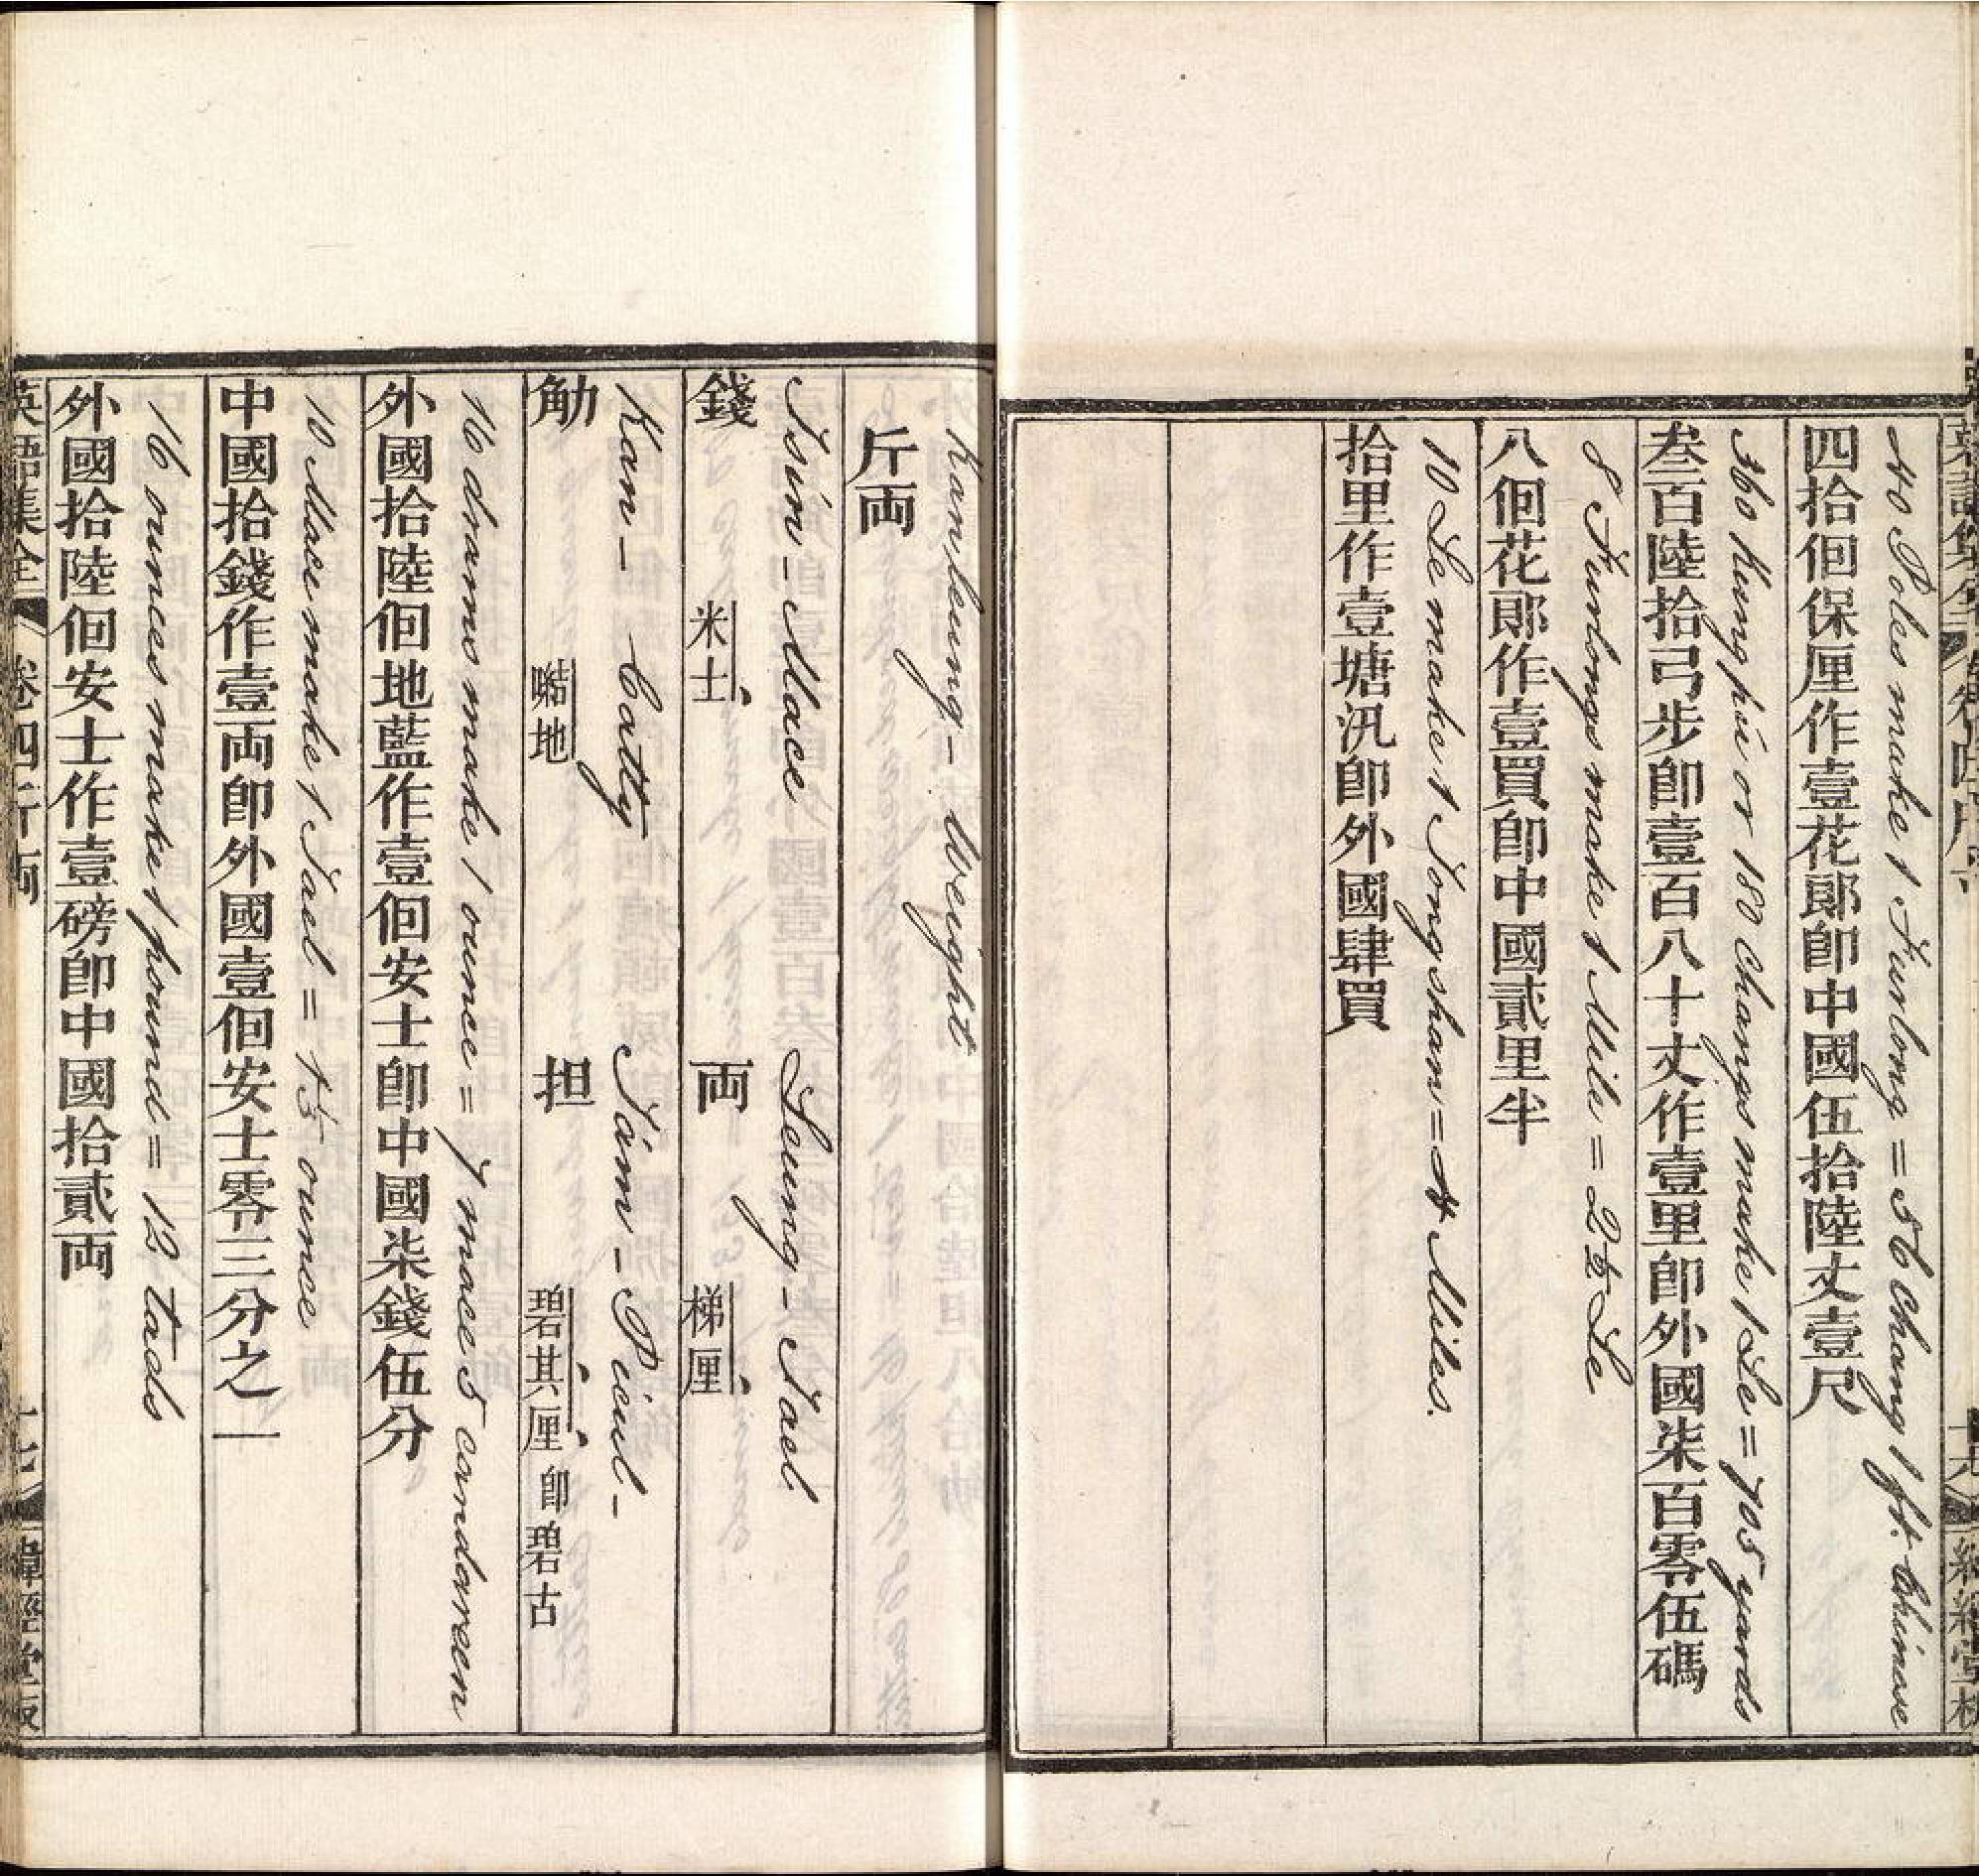 40 Poles make 1 Furlong = 56 Chang 1 ft. Chinese
四拾佪保厘作壹花郎卽中國伍拾陸丈壹尺
360 Kung pú or 180 Changs make 1 Le = 705 yards
叁百陸拾弓步卽壹百八十丈作壹里卽外國柒百零伍碼
8 Furlongs make 1 Mile = 2½ Le
八佪花郎作壹買卽中國貳里半
10 Le make 1 Tong shan = 4 Miles.
拾里作壹塘汛卽外國肆買
Kan leung - Weight
斤両
Tsín - Mace
Leung - Tael
錢 米士
両 梯厘
Kan - Catty
Tám - Picul -
觔 㗖地
担 碧其厘 卽碧古
16 drams make 1 ounce = 7 mace 5 candareen
外國拾陸佪地藍作壹佪安士卽中國柒錢伍分
10 Mace make 1 Tael = 1⅓ ounce
中國拾錢作壹両卽外國壹佪安士零三分之一
16 ounces make 1 pound = 12 taels
外國拾陸佪安士作壹磅卽中國拾貳両
英語集全 卷四 斤両
十七 緯經堂板